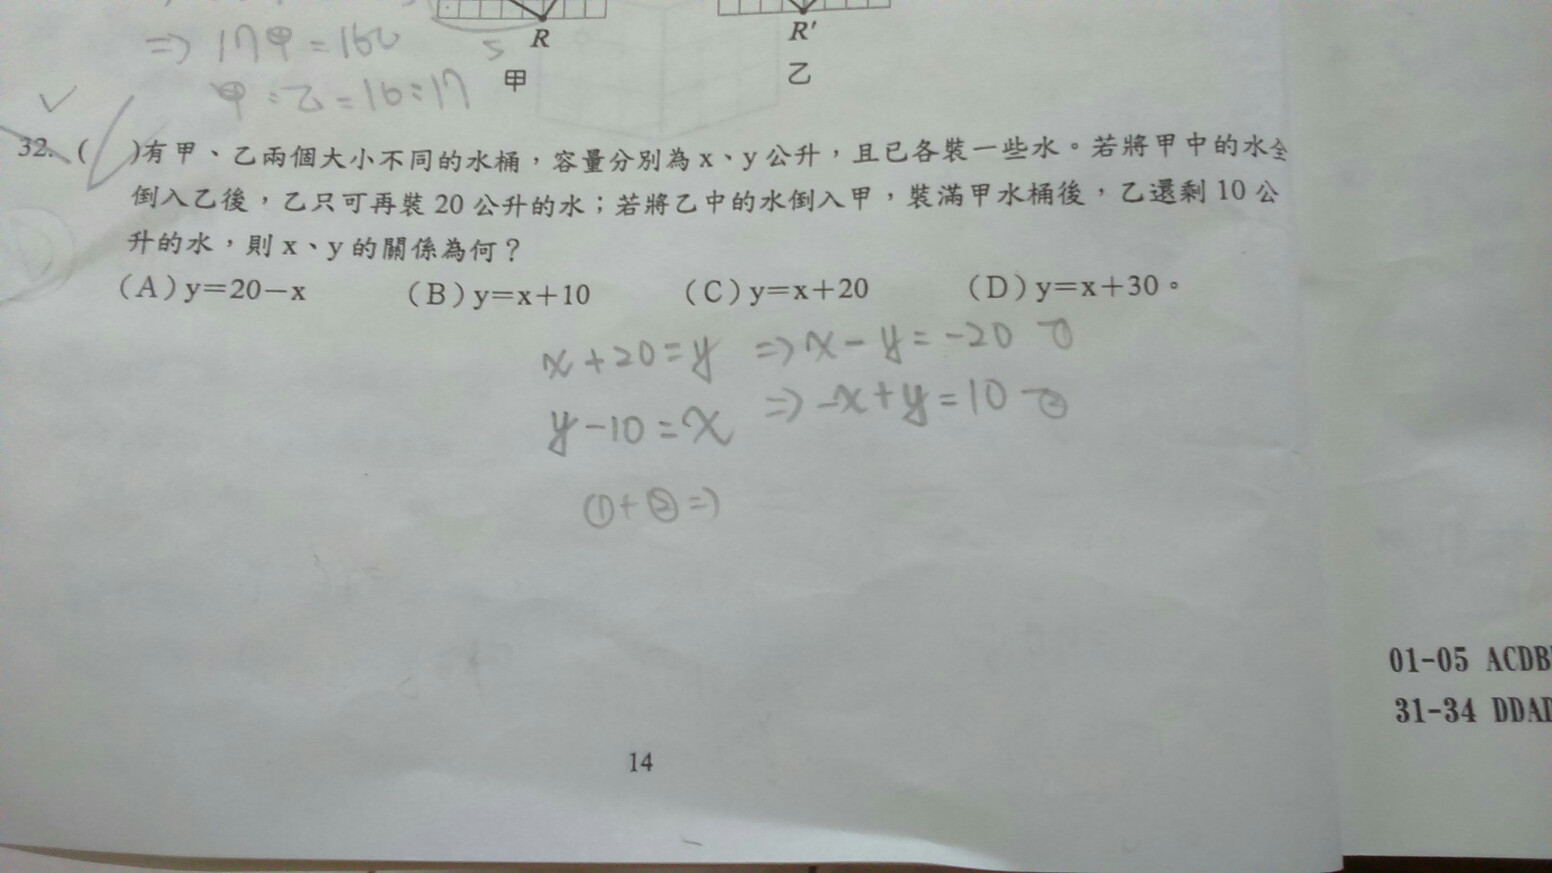 ⇒ 17甲=16乙
甲:乙=16:17
5
R
甲
R′
乙
32. ( )有甲、乙兩個大小不同的水桶,容量分別為 x、y 公升,且已各裝一些水。若將甲中的水全
倒入乙後,乙只可再裝 20 公升的水;若將乙中的水倒入甲,裝滿甲水桶後,乙還剩 10 公
升的水,則 x、y 的關係為何?
(A)y=20-x (B)y=x+10 (C)y=x+20 (D)y=x+30。
x+20=y ⇒x-y=-20 -①
y-10=x ⇒-x+y=10 -②
①+②⇒
01-05 ACDB
31-34 DDAD
14